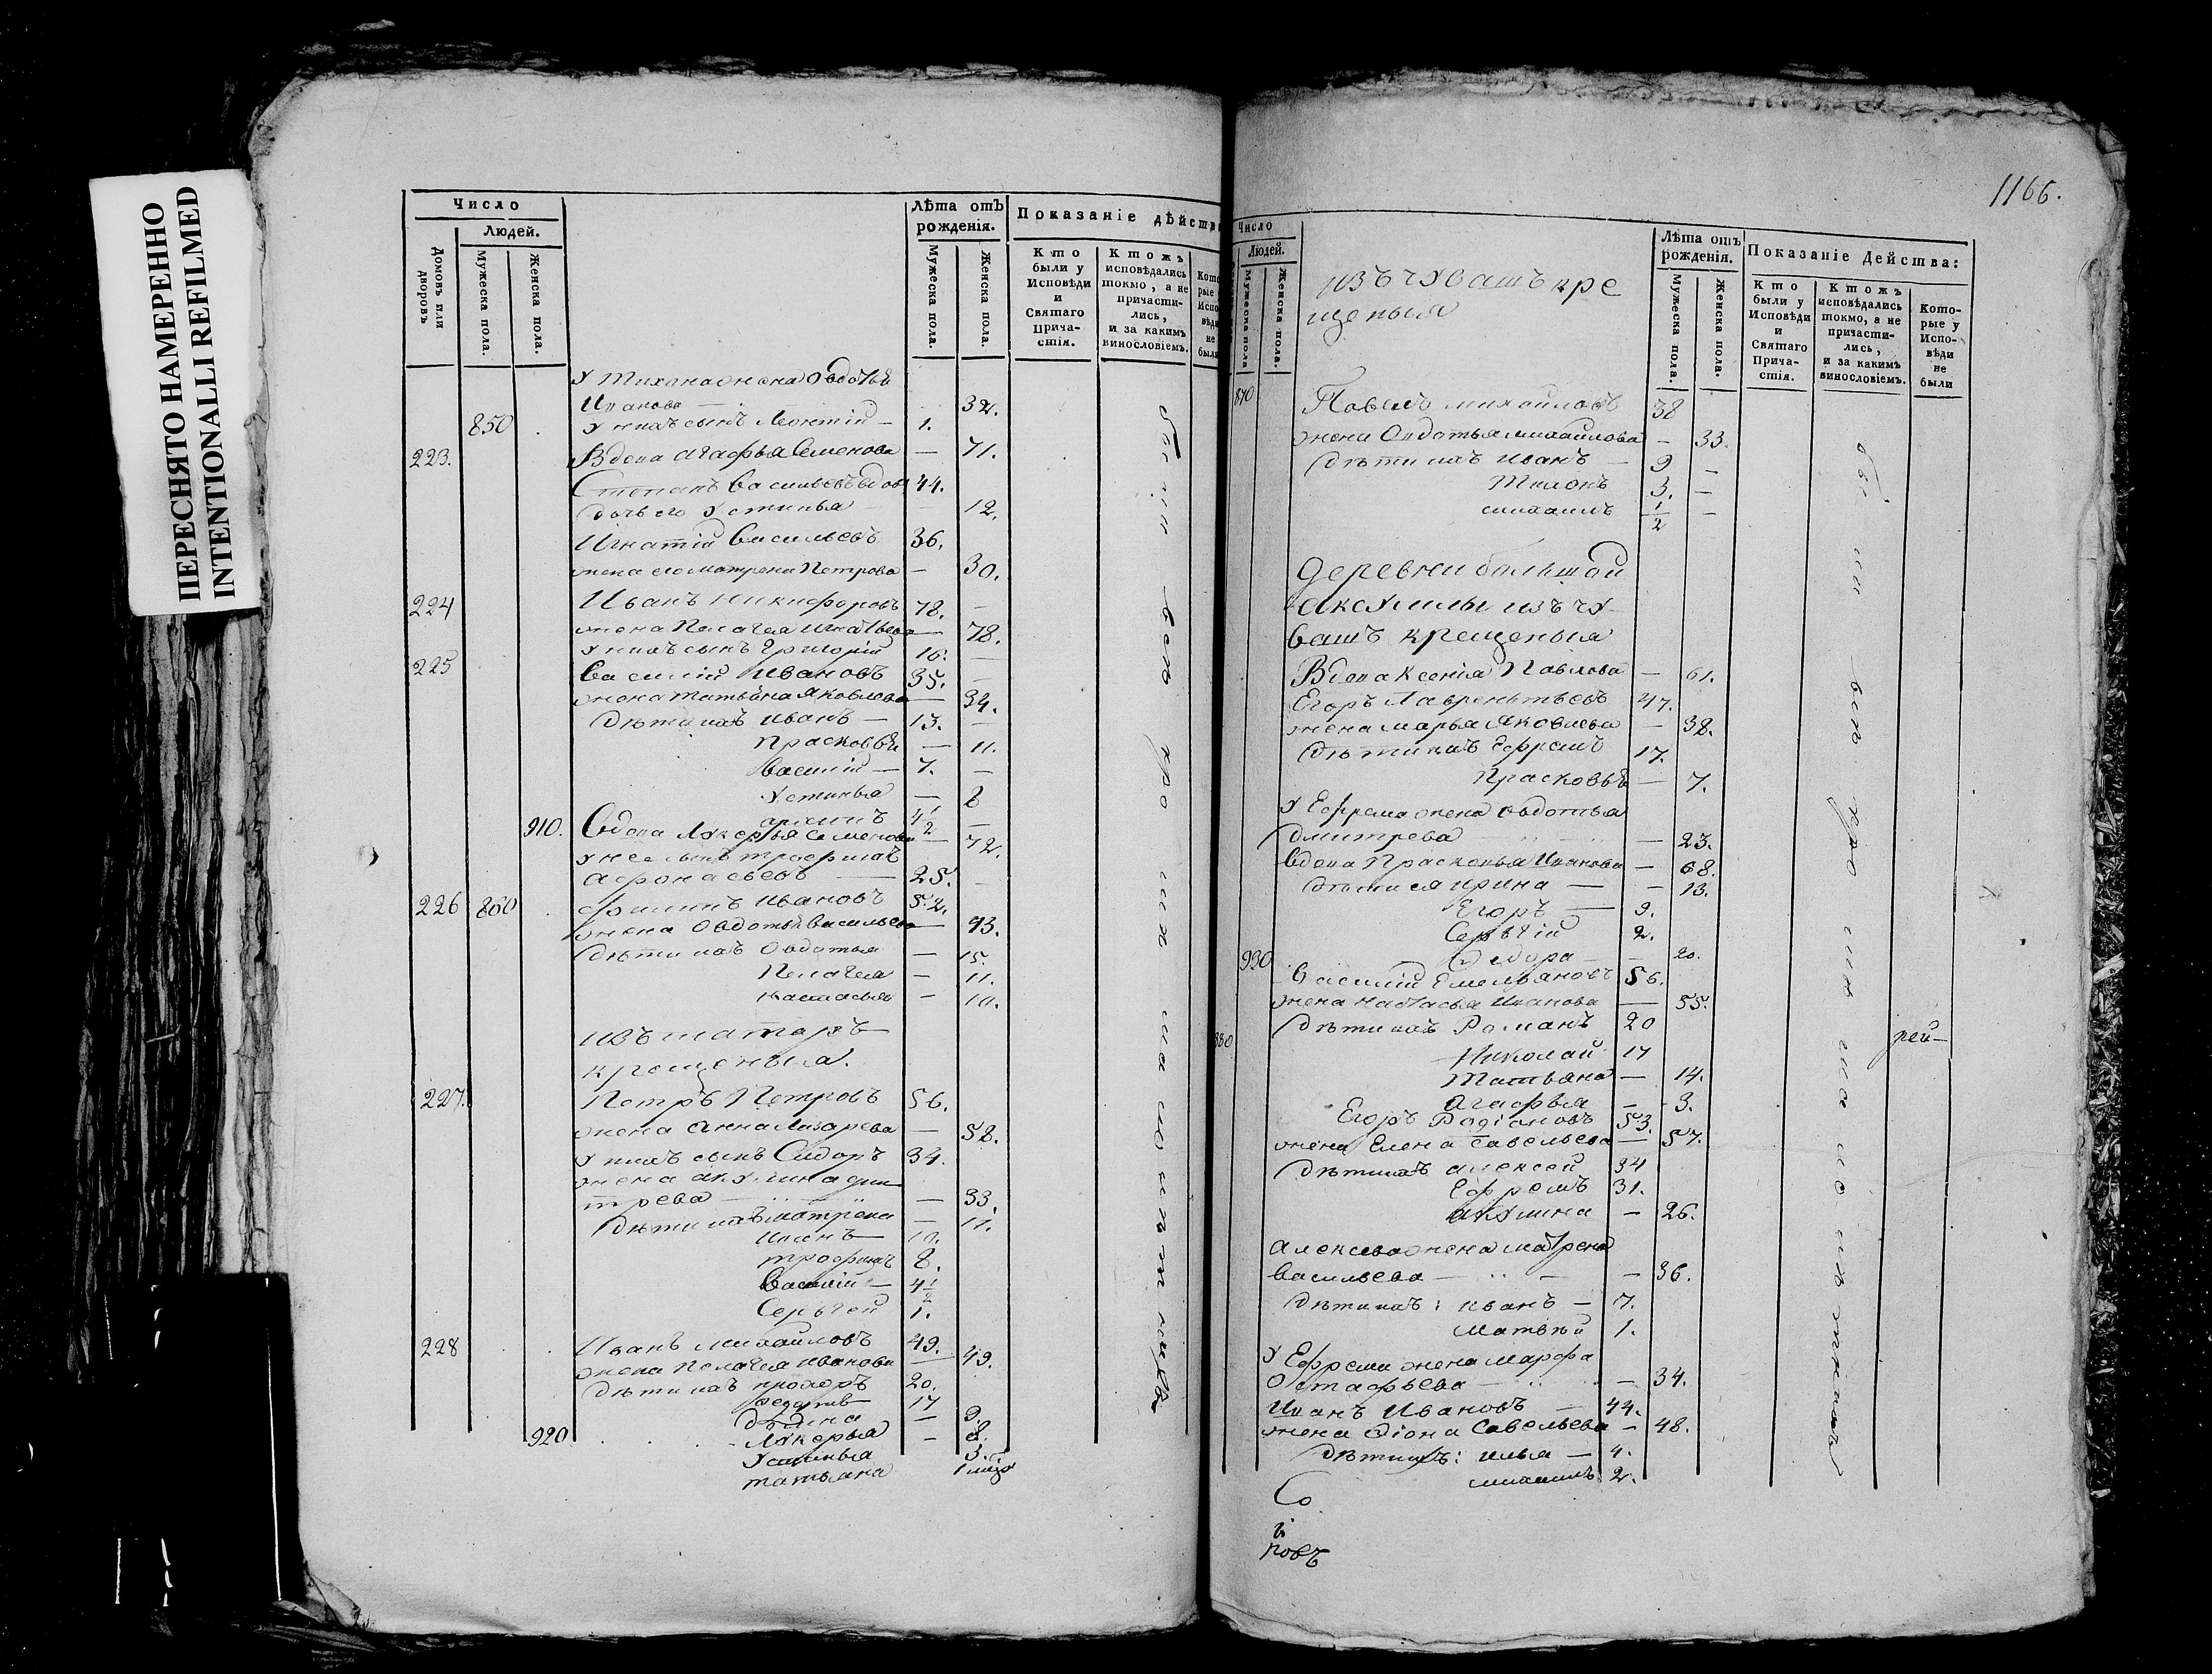 ПЕРЕСНЯТО НАМЕРЕННО
INTENTIONALLI REFILMED
Число
Людей.
Домовъ или дворовъ
Мужеска пола.
Женска пола.
Лѣта отъ рожденія.
Мужеска пола.
Женска пола.
Показаніе дѣйств
Кто были у Исповѣди и Святаго Прича- стія.
Ктожъ исповѣдались токмо, а не причасти- лись, и за какимъ винословіемъ.
были вси кро
У тихона жена Овдотья
Иванова 32.
850 У нихъ сынъ Леонтій 1.
223. Вдова Агафья Семенова — 71.
Степанъ Васильевъ вдов 44.
дочь его Устинья 12.
Игнатій Васильевъ 36.
жена его матрена Петрова — 30.
224 Иванъ Никифоровъ 78. —
жена Пелагея Игнатьева — 78.
У нихъ сынъ Григорій 16. —
225 Василій Ивановъ 35. —
жена татьяна Яковлева — 34.
дѣти ихъ иванъ — 13. —
Прасковья — 11.
Василій — 7. —
Устинья — 8
архипъ 4 1/2 —
910. Вдова Лукерья Семенова — 72.
У нее сынъ трофимъ
Афонасьевъ — 25. —
226 860 филипъ ивановъ 52.
жена Овдотья Васильева — 43.
дѣти ихъ Овдотья — 15.
Пелагея — 11.
настасья — 10.
изъ татаръ
крещеныя.
227. Петръ Петровъ 56.
жена анна Лазарева — 58.
У нихъ сынъ Сидоръ 34.
жена акулина дми
трева — 33.
дѣти ихъ матрена — 11.
Иванъ — 10.
трофимъ 8.
Василій — 4 1/2
Сергѣй 1.
228 Иванъ михайловъ 49.
жена Пелагея иванова — 49.
дѣти ихъ прохоръ 20.
17
— 9.
920 Лукерья — 8.
Устинья 3.
татьяна 1
1166.
Число
Людей.
Мужеска пола
Женска пола.
изъ чувашъ кре
щеныя
Лѣта отъ рожденія.
Мужеска пола.
Женска пола.
Показаніе Действа:
Кто были у Исповѣди и Святаго Прича- стія.
Ктожъ исповѣдались токмо, а не причасти- лись, и за какимъ винословіемъ.
Кото- рые у Испо- вѣди не были
870 Павелъ михайловъ 38
жена Овдотья михайлова — 33.
дѣти ихъ иванъ — 9 —
Тихонъ 3. —
михаилъ 1/2 —
деревни большой
аксулилы изъ чу
вашъ крещеныя
Вдова Ксенія Павлова — 61.
Егоръ Лаврентьевъ 47.
жена марья Яковлева — 38.
дѣти ихъ Ефремъ 17.
Прасковья — 7.
У Ефрема жена Овдотья
дмитрева — 23.
вдова Прасковья Иванова — 68.
дѣти ея ирина — — 13.
Егоръ — 9.
Сергѣй 2.
930 Федора — — 20.
Василій Емельяновъ 56.
жена настасья Иванова — 55.
880 дѣти ихъ Романъ 20
Николай 17
татьяна — 14.
Агафья — 3.
Егоръ Родіоновъ 53.
жена Елена Савельева — 57.
дѣти ихъ алексей 34
Ефремъ 31.
акулина — 26.
алексея жена матрена
васильева — 36.
дѣти ихъ: иванъ — 7.
матвѣй 1.
У Ефрема жена марфа
Остафьева — — 34.
Иванъ Ивановъ — 44.
жена Савельева — 48.
дѣти ихъ: илья — 4.
михаилъ 2.
рей—
Со
повъ